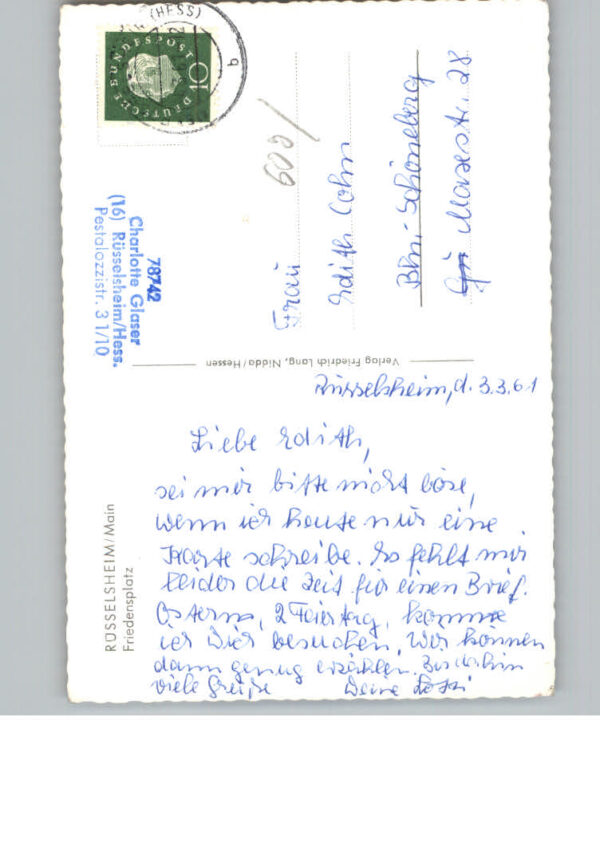 DEUTSCHE BUNDESPOST
10
(HESS)
600/
Frau
Edith Cohn
Bln.-Schöneberg
Gu Maxestr. 28
78742
Charlotte Glaser
(16) Rüsselsheim/Hess.
Pestalozzistr. 31/10
Verlag Friedrich Lang, Nidda/Hessen
Rüsselsheim, d. 3.3.61
Liebe Edith,
sei mir bitte nicht böse,
wenn ich heute nur eine
Karte schreibe. Es fehlt mir
leider die Zeit für einen Brief.
Ostern, 2 Feiertag, komme
ich Dich besuchen. Wir können
dann genug erzählen. Bis dahin
viele Grüße Deine Lotti
RÜSSELSHEIM/Main
Friedensplatz